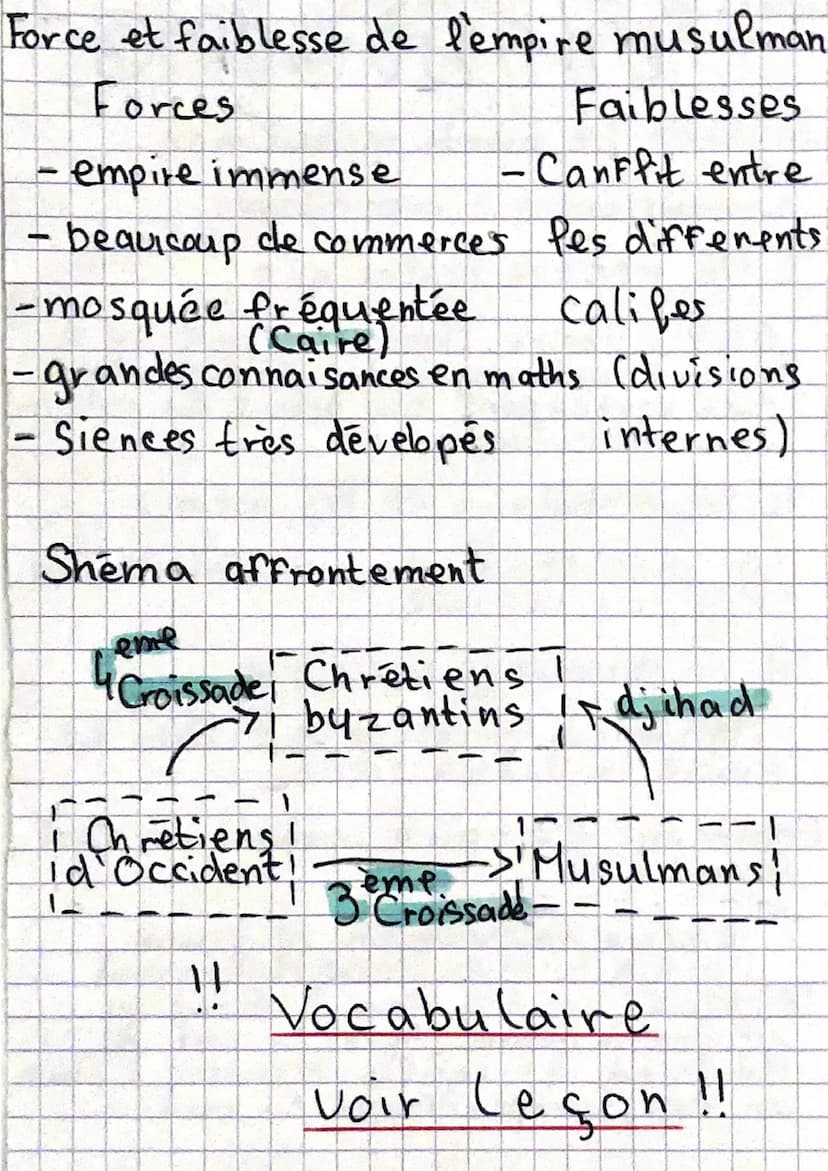 Force et faiblesse de l'empire musulman
Forces Faiblesses
- empire immense - Canflit entre
- beaucoup de commerces les differents
- mosquée fréquentée califes
(Caire)
- grandes connaisances en maths (divisions
- Siences très dévelopés internes)
Shéma affrontement
4 eme
Croissade
Chrétiens
byzantins
djihad
Chrétiens
d'Occident
3 ème
Croissade
Musulmans
!! Vocabulaire
voir leçon !!